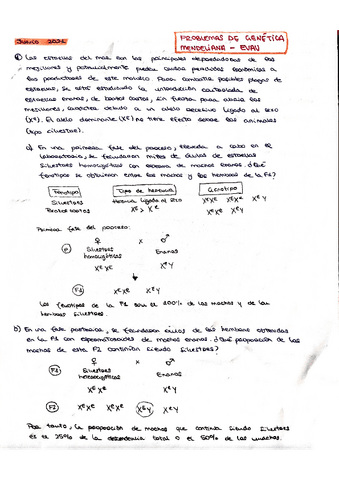 JUNIO 2021
PROBLEMAS DE GENÉTICA
MENDELIANA - EVAU
① Las estrellas del mar son las principales depredadoras de los
mejillones y potencialmente pueden causar pérdidas económicas a
los productores de este molusco. Para combatir posibles plagas de
estrellas, se está estudiando la introducción controlada de
estrellas enanas, de brazos cortos, sin fuerza para abrir los
mejillones, carácter debido a un alelo recesivo ligado al sexo
(Xᵉ). El alelo dominante (Xᴱ) no tiene efecto sobre los animales
(tipo silvestre).
a) En una primera fase del proceso, llevada a cabo en el
laboratorio, se fecundaron miles de óvulos de estrellas
silvestres homocigóticas con esperma de machos enanos. ¿Qué
fenotipos se obtienen entre los machos y las hembras de la F1?
Fenotipo Tipo de herencia Genotipo
Silvestres Herencia ligada al sexo XᴱXᴱ XᴱXᵉ XᴱY
Brazos cortos Xᴱ > Xᵉ XᵉXᵉ XᵉY
Primera fase del proceso:
♀ x ♂
P Silvestres Enanos
homocigóticas XᵉY
XᴱXᴱ
F1 XᴱXᵉ XᴱY
Los fenotipos de la F1 son el 100% de los machos y de las
hembras silvestres.
b) En una fase posterior, se fecundaron óvulos de las hembras obtenidas
en la F1 con espermatozoides de machos enanos. ¿Qué proporción de los
machos de esta F2 continúan siendo silvestres?
♀ x ♂
F1 Silvestres Enanos
heterocigóticas
XᴱXᵉ XᵉY
F2 XᴱXᵉ XᵉXᵉ XᴱY XᵉY
Por tanto, la proporción de machos que continúa siendo silvestres
es el 25% de la descendencia total o el 50% de los machos.